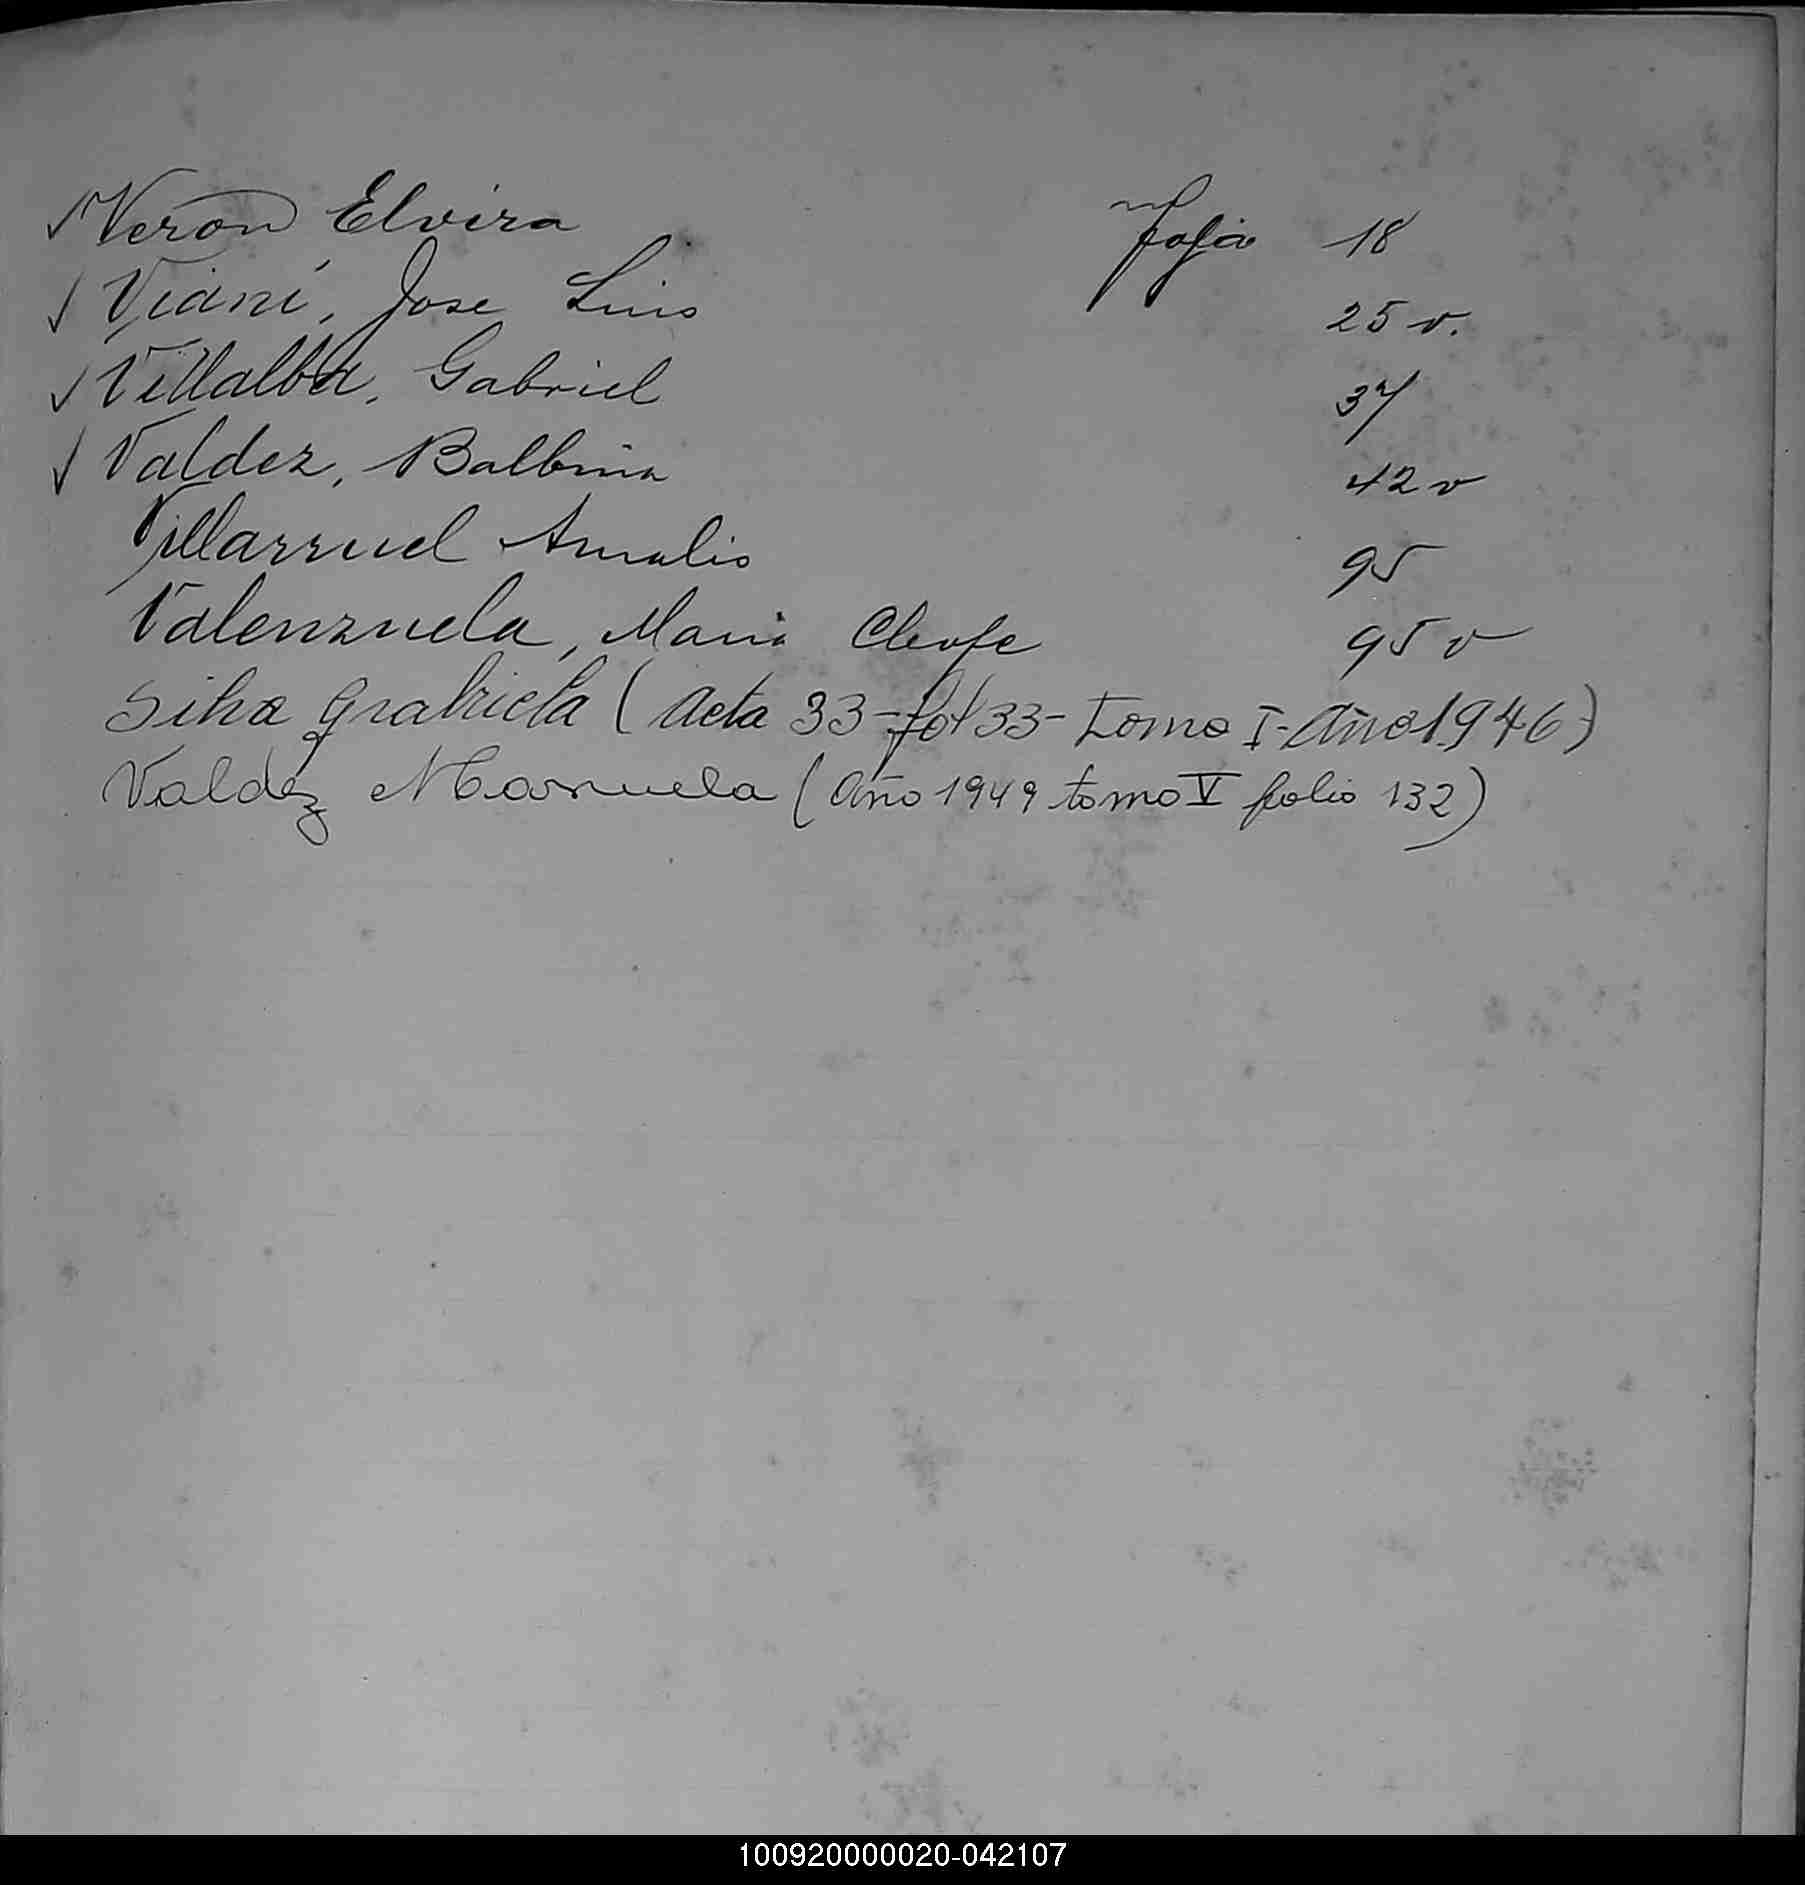 ✓ Veron Elvira foja 18
✓ Viani, Jose Luis 25 v.
✓ Villalba, Gabriel 37
✓ Valdez, Balbina 42 v
Villarruel Amalio 95
Valenzuela, Maria Cleofe 95 v
Silva Grabriela (Acta 33-fol 33- Tomo I-Año 1946)
Valdez Manuela (Año 1949 tomo V folio 132)
100920000020-042107